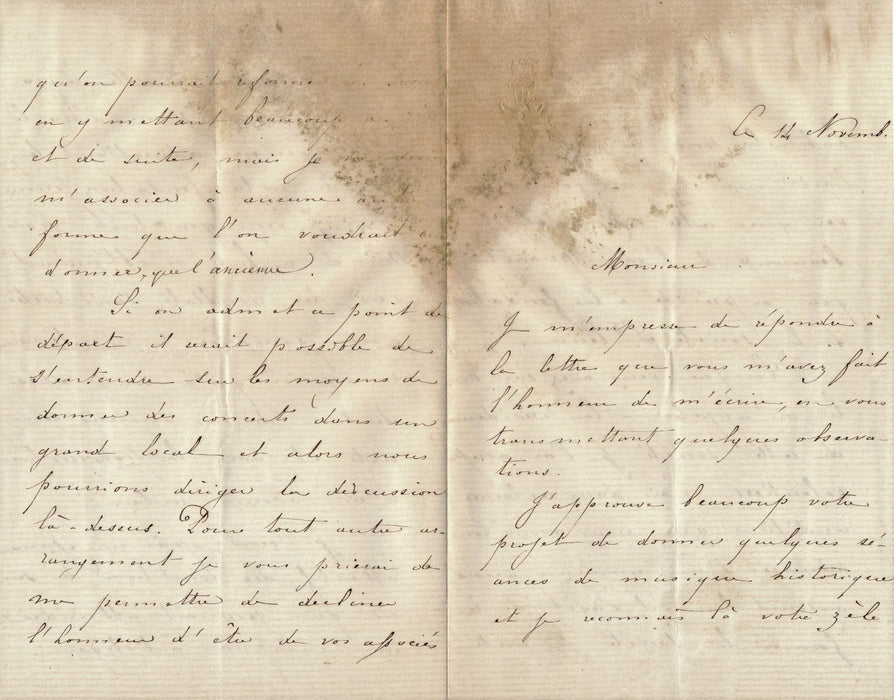 le 14 Novemb.
Monsieur
Je m'empresse de répondre à
la lettre que vous m'avez fait
l'honneur de m'écrire, en vous
transmettant quelques observa
tions.
J'approuve beaucoup votre
projet de donner quelques sé-
ances de musique historique
et je reconnais là votre zèle
qu'on pourrait reformer
en y mettant beaucoup
et de suite, mais je
m'associer à aucune
forme que l'on voudrait
donner, que l'ancienne.
Si on admet ce point de
départ il serait possible de
s'entendre sur les moyens de
donner des concerts dans un
grand local et alors nous
pourrions diriger la discussion
là-dessus. Pour tout autre ar-
rangement je vous prierai de
me permettre de decliner
l'honneur d'être de vos associés